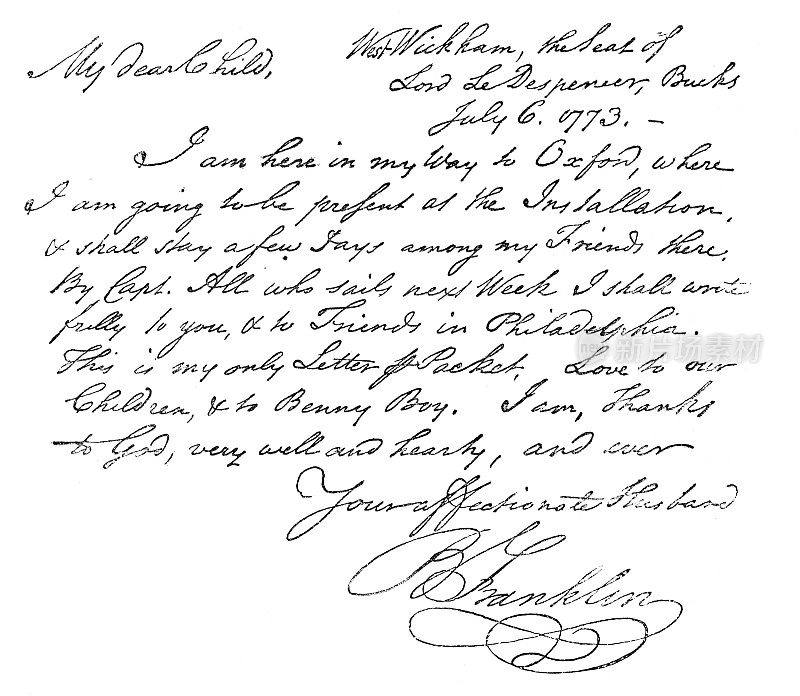 My dear Child,
West Wickham, the Seat of
Lord Le Despencer, Bucks
July 6. 1773. —
I am here in my Way to Oxford, where
I am going to be present at the Installation,
& shall stay a few Days among my Friends there.
By Capt. All who sails next Week I shall write
fully to you, & to Friends in Philadelphia.
This is my only Letter ⅌ Packet. Love to our
Children, & to Benny Boy. I am, Thanks
to God, very well and hearty, and ever
Your affectionate Husband
B Franklin
新片场素材